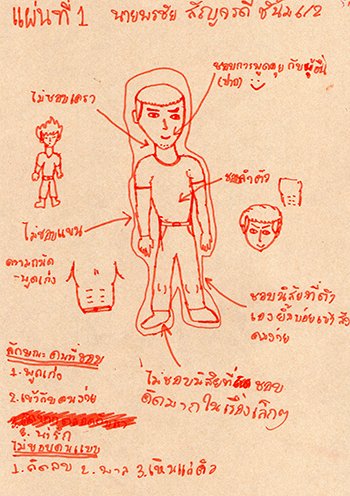 แผ่นที่ 1 นายพรชัย สัญจรดี ชั้น ม.6/2
ชอบการพูดคุย กับผู้อื่น
(ปาก)
ไม่ชอบเครา
ชอบลำตัว
ไม่ชอบแขน
ความถนัด
-พูดเก่ง
ชอบนิสัยที่ตัว
เองยิ้มบ่อยเข้าสัง
คมง่าย
ไม่ชอบนิสัยที่ ชอบ
คิดมากในเรื่องเล็กๆ
ลักษณะคนที่ชอบ
1.พูดเก่ง
2.เข้ากับคนง่าย
3. น่ารัก
ไม่ชอบคนแบบ
1.คิดลบ 2.พาล 3.เห็นแก่ตัว